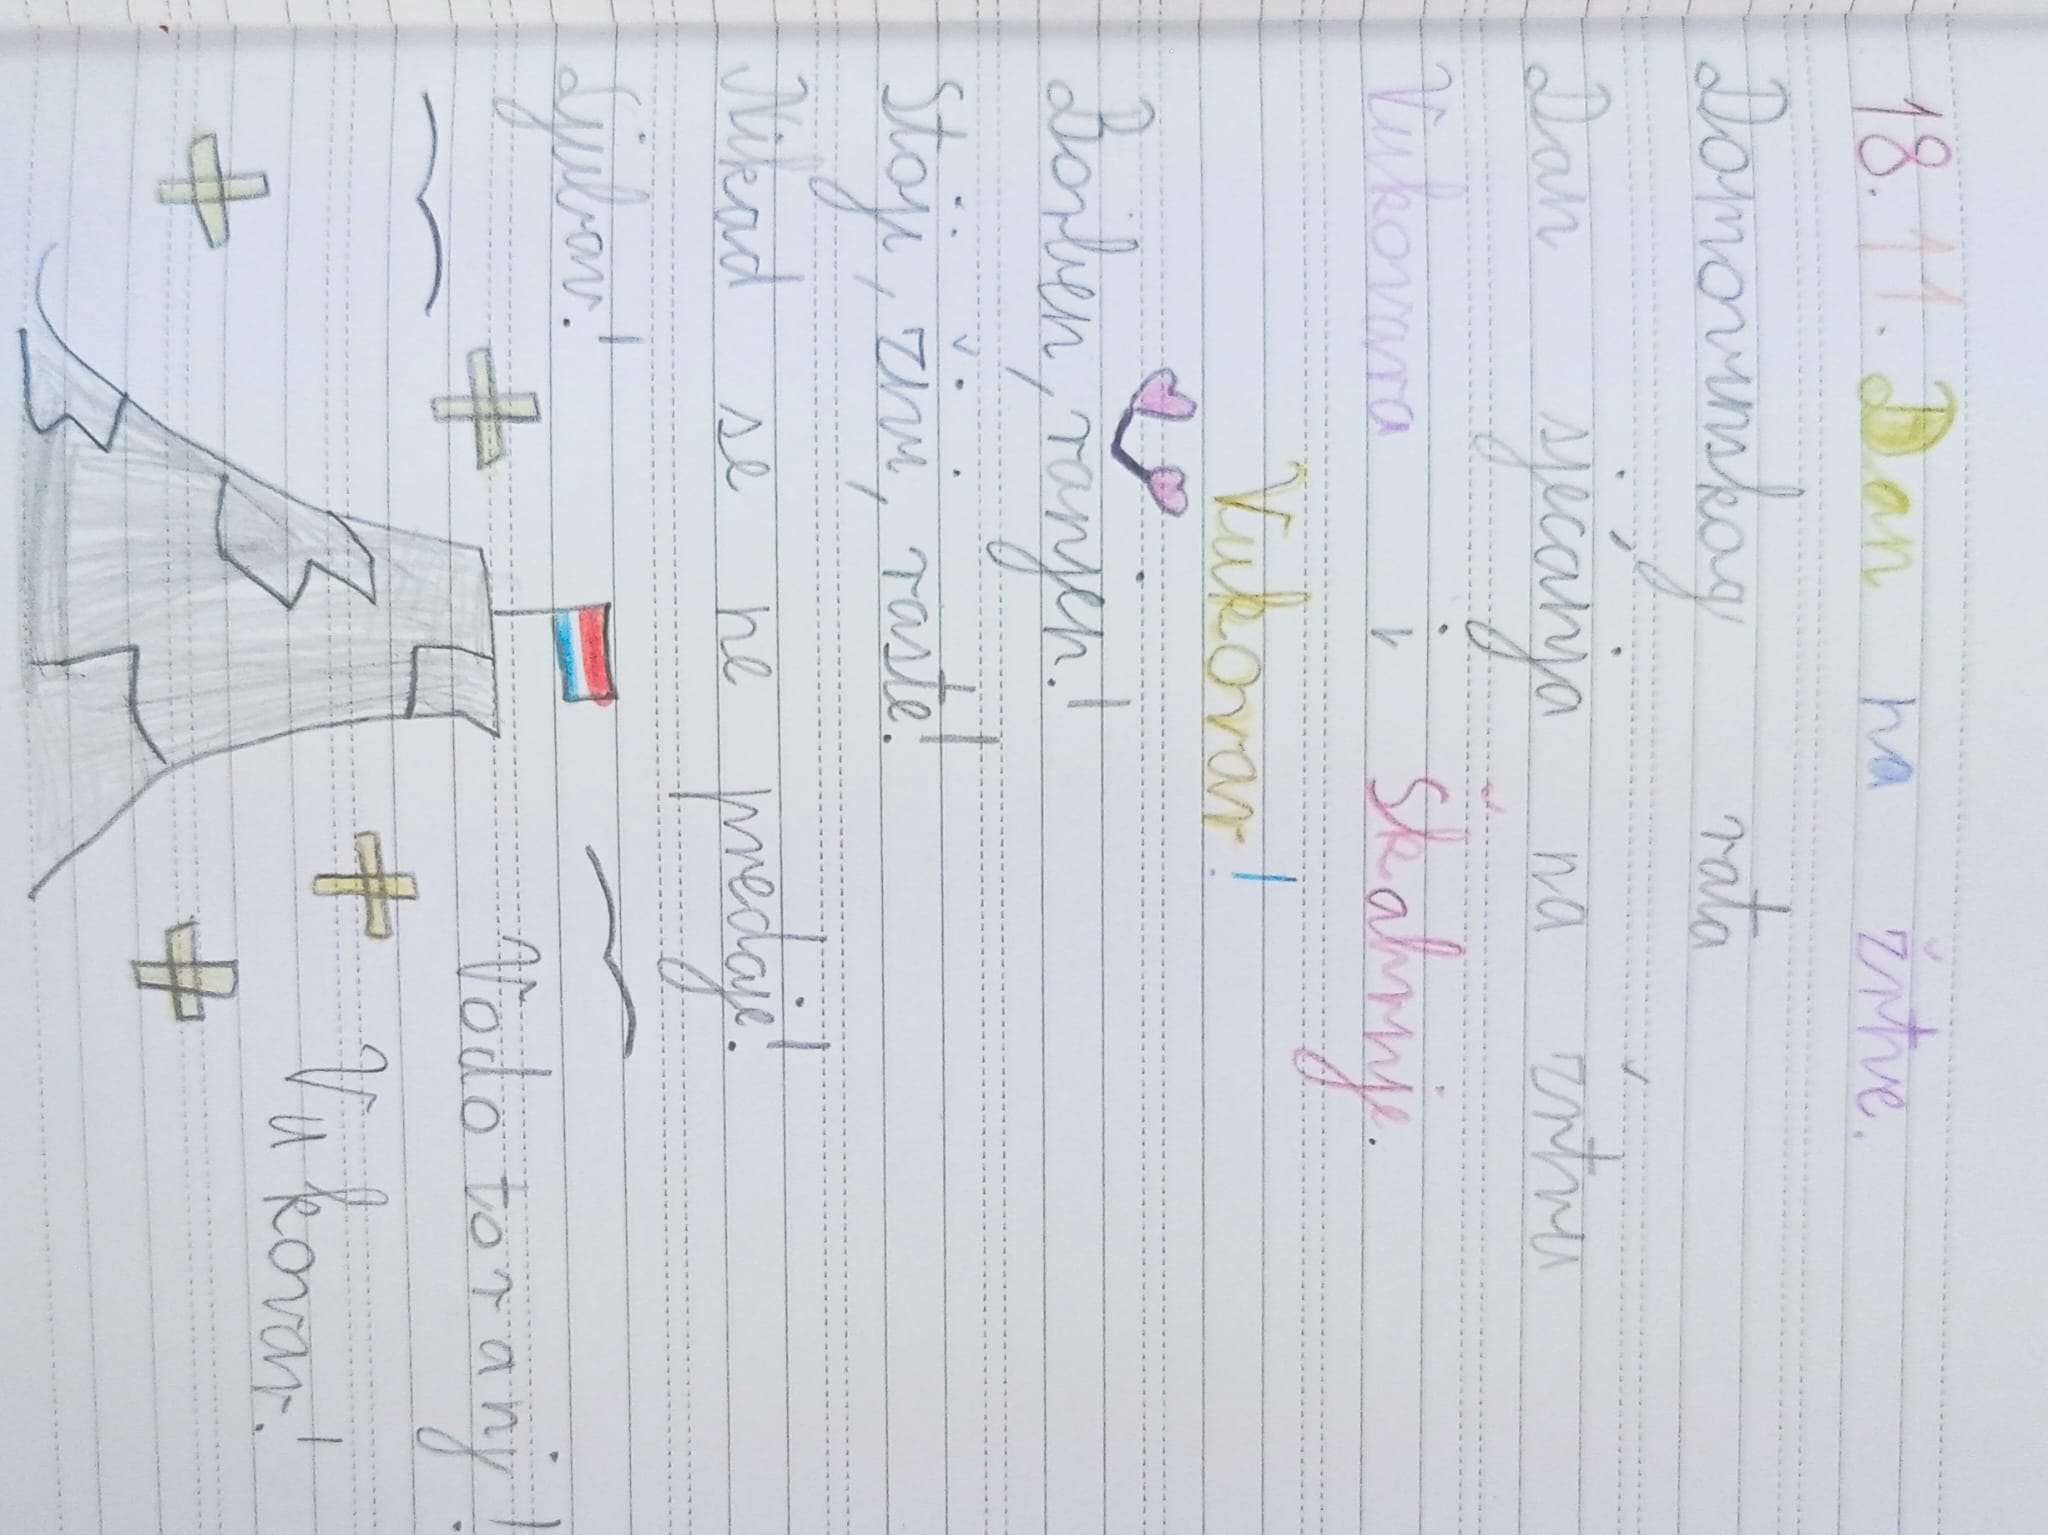 18. 11. Dan na žrtve.
Domovinskog rata
Dan sjećanja na žrtvu
Vukovara i Škabrnje.
Vukovar!
Bodven, ranjen!
Stoji, živi, raste!
Nikad se ne predaje!
Ljubav!
Vodotoranj!
Vukovar!